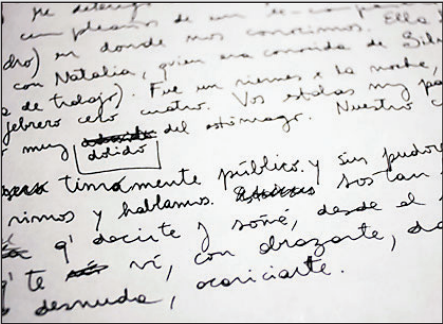 me detengo
cumpleaños de un ex-compañ
dro) en donde nos conocimos. Ella
con Natalia, quien era conocida de Sil
a de trabajo). Fue un viernes a la noche,
febrero cero cuatro. Vos estabas muy pa
muy dolido del estómago. Nuestro c
timamente público y sin pudor
rimos y hablamos. sos tan
q' decirte y soñé, desde el
q' te vi, con abrazarte,
desnuda, acariciarte.